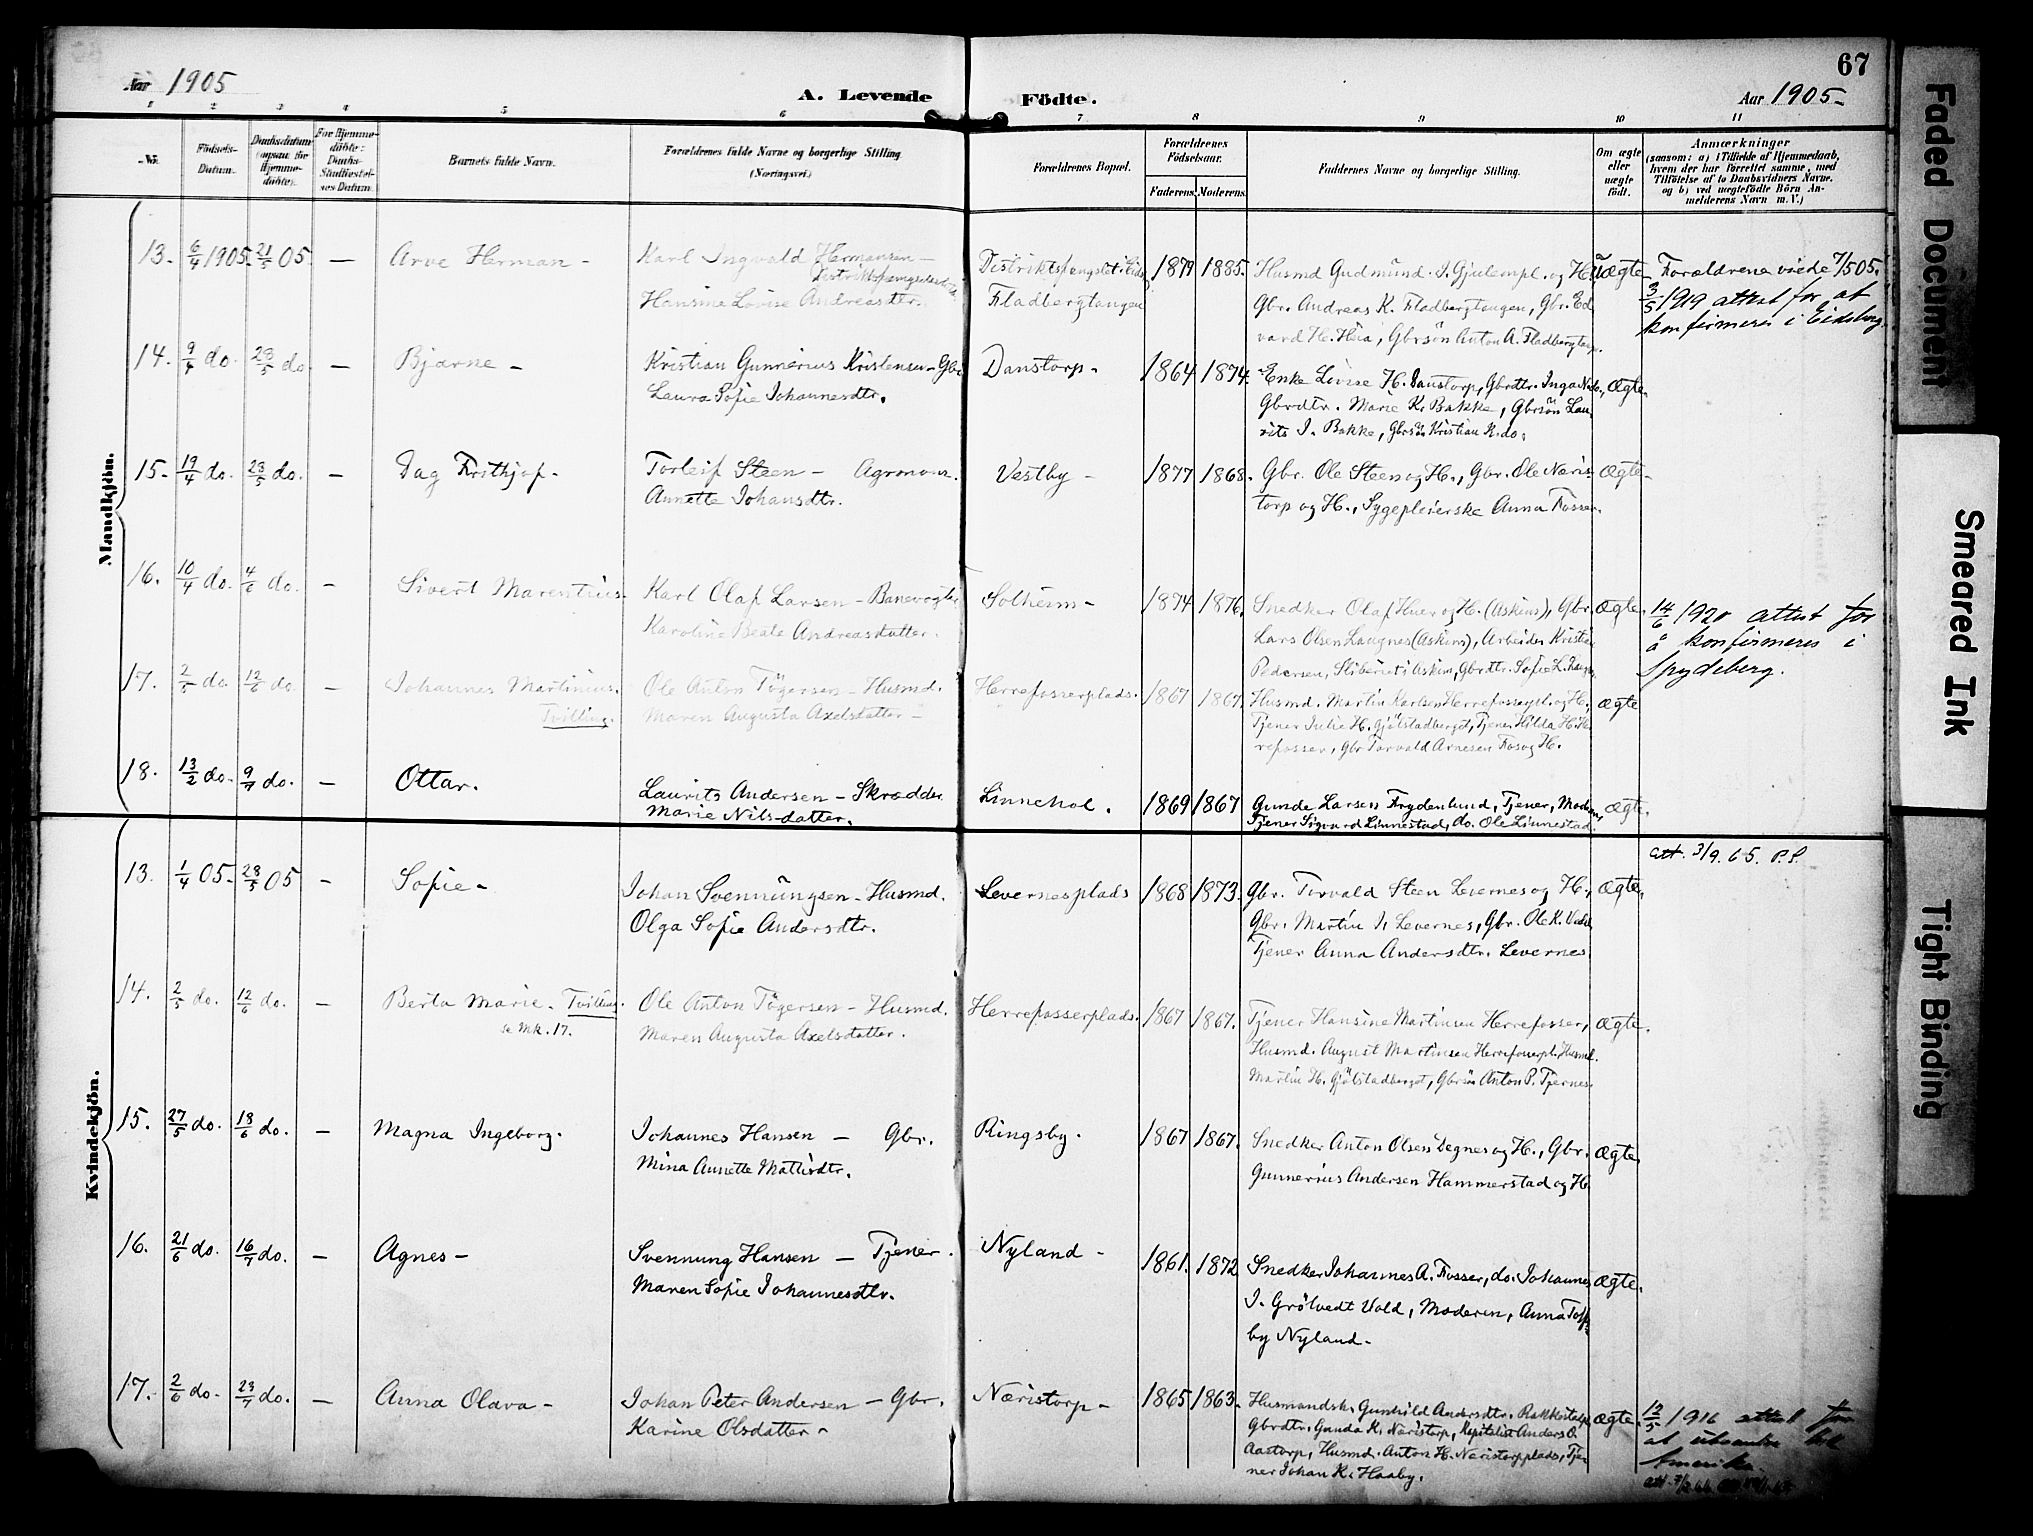 Aar 1905
A. Levende
Födte.
67
Aar 1905-
1 2 3 4 5 6 7 8 9 10 11
No.
Födsels-
Datum.
Daabsdatum
(ogsaa for
Hjemme-
döbte).
For Hjemme-
döbte:
Daabs-
Stadfæstel-
ses Datum.
Barnets fulde Navn.
Forældrenes fulde Navne og borgerlige Stilling
(Næringsvei.)
Forældrenes Bopæl.
Forældrenes
Födselsaar.
Faderens. Moderens.
Faddernes Navne og borgerlige Stilling.
Om ægte
eller
uægte
födt.
Anmærkninger
(saasom: a) i Tilfælde af Hjemmedaab,
hvem der har forrettet samme, med
Tilföielse af to Daabsvidners Navne,
og b) ved uægtefödte Börn An-
melderens Navn m. V.)
Mandkjön.
13. 6/4 1905. 21/5 05. — Arve Herman -
Karl Ingvald Hermansen -
Hansine Lovise Andreasdtr.
Fladbergtangen
1879 1885.
Husmd Gudmund. I. Gjulempl. og H.,
Gbr. Andreas K. Fladbergtangen, Gbr. Ed
vard H. Heia, Gbrsön Anton A. Fladbergtang.
Uægte-
Forældrene viede 7/5 05.
3/5 1919 attest for at
konfirmeres i Eidsberg.
14. 9/4 do. 23/5 do — Bjarne -
Kristian Gunnerius Kristensen - Gbr.
Laura Sofie Johannesdtr.
Danstorp -
1864 1874.
Enke Lovise H. Danstorp, Gbrdtr. Inga N. do.,
Gbrdtr. Marie K. Bakke, Gbrsön Lau
rits I. Bakke, Gbrsön Kristian K. do.
Ægte-
15. 19/4 do. 23/5 do. — Dag Frithjof -
Torleif Steen - Agronom.
Annette Johansdtr.
Vestby -
1877 1868.
Gbr. Ole Steen og H., Gbr. Ole Næris-
torp og H., Sygepleierske Anna Fosser.
Ægte-
16. 10/4 do. 4/6 do. — Sivert Marentius
Karl Olaf Larsen - Banevogter
Karoline Beate Andreasdatter.
Solheim -
1874 1876.
Snedker Olaf Huer og H. (Askim), Gbr.
Lars Olsen Langnes (Askim), Arbeider Kristian
Pedersen, Sliberiet i Askim, Gbrdtr. Sofie L.
Ægte.
14/6 1920 attest for
å konfirmeres i
Spydeberg.
17. 2/5 do. 12/6 do — Johannes Martinius.
Tvilling.
Ole Anton Tögersen - Husmd.
Maren Augusta Axelsdatter -
Herrefosserplads.
1867 1867.
Husmd. Martin Karlsen Herrefosserpl. og H.,
Tjener Julie H. Gjölstadberget, Tjener Hilda H. Her
refosser, Gbr Torvald Arnesen Fos og H.
Ægte
18. 13/2 do. 9/7 do. — Ottar.
Laurits Andersen - Skrædder
Marie Nilsdatter.
Linnehol.
1869 1867
Gunde Larsen Frydenlund, Tjener, Moderen,
Tjener Sigvard Linnestad, do. Ole Linnestad.
Ægte.
Kvindekjön.
13. 1/4 05. 28/5 05 — Sofie -
Johan Svennungsen - Husmd.
Olga Sofie Andersdtr.
Levernesplads
1868 1873.
Gbr. Torvald Steen Levernes og H.,
Gbr. Martin I. Levernes, Gbr. Ole K.
Tjener Anna Andersdtr. Levernes
Ægte.
att. 3/9. 65. P.P.
14. 2/5 do. 12/6 do. — Berta Marie. Tvilling.
se Mk. 17.
Ole Anton Tögersen - Husmd.
Maren Augusta Axelsdatter.
Herrefosserplads.
1867 1867.
Tjener Hansine Martinsen Herrefosser,
Husmd. August Martinsen Herrefosserpl., Husmd.
Martin H. Gjölstadberget, Gbrsön Anton P. Tjernes
Ægte.
15. 27/5 do. 18/6 do. — Magna Ingeborg.
Johannes Hansen — Gbr.
Mina Annette Mattisdtr.
Ringsby.
1867 1867.
Snedker Anton Olsen Degnes og H., Gbr.
Gunnerius Andersen Hammerstad og H.
Ægte
16. 21/6 do. 16/7 do. — Agnes -
Svennung Hansen — Tjener.
Maren Sofie Johannesdtr.
Nyland -
1861. 1872
Snedker Johannes A. Fosser, do. Johannes
I. Grölvedt Vold, Moderen, Anna
by Nyland.
Ægte.
17. 2/6 do. 23/7 do. — Anna Olava -
Johan Peter Andersen — Gbr.
Karine Olsdatter -
Næristorp -
1865 1863.
Husmandsk. Gunhild Andersdtr.
Gbrdtr. Gunda K. Næristorp, Kapitalist Anders O.
Aastorp, Husmd. Anton H. Næristorpplads, Tje
ner Johan K. Haaby.
Ægte.
12/5 1916 attest for
at utvandre til
Amerika.
Faded Document
Smeared Ink
Tight Binding